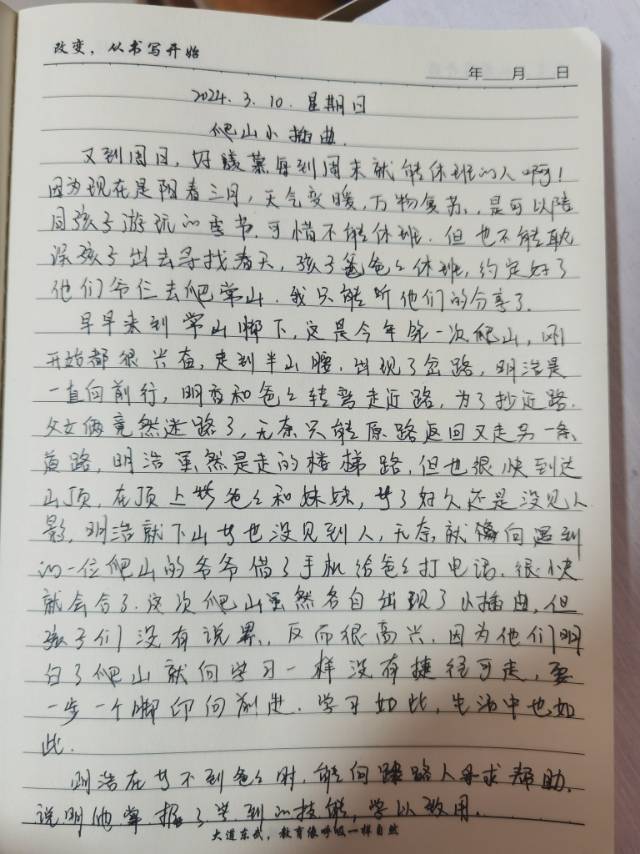 改变，从书写开始
年 月 日
2024.3.10.星期日
爬山小插曲.
又到周日，好羡慕每到周末就能休班的人啊！
因为现在是阳春三月，天气变暖，万物复苏，是可以陪
同孩子游玩的季节.可惜不能休班.但也不能耽
误孩子出去寻找春天，孩子爸爸休班，约定好了
他们爷仨去爬常山.我只能听他们的分享了.
早早来到常山脚下，这是今年第一次爬山，刚
开始都很兴奋，走到半山腰，出现了岔路，明浩是
一直向前行，明齐和爸爸转弯走近路，为了抄近路.
父女俩竟然迷路了，无奈只能原路返回又走另一条
道路，明浩虽然是走的楼梯路，但也很快到达
山顶，在顶上等爸爸和妹妹，等了好久还是没见人
影，明浩就下山等也没见到人，无奈就向遇到
的一位爬山的爷爷借了手机给爸爸打电话.很快
就会合了.这次爬山虽然各自出现了小插曲，但
孩子们没有说累，反而很高兴，因为他们明
白了爬山就向学习一样没有捷径可走，要
一步一个脚印向前进.学习如此，生活中也如
此.
明浩在等不到爸爸时.能向路人寻求帮助，
说明他掌握了学到的技能，学以致用.
大道东武，教育像呼吸一样自然